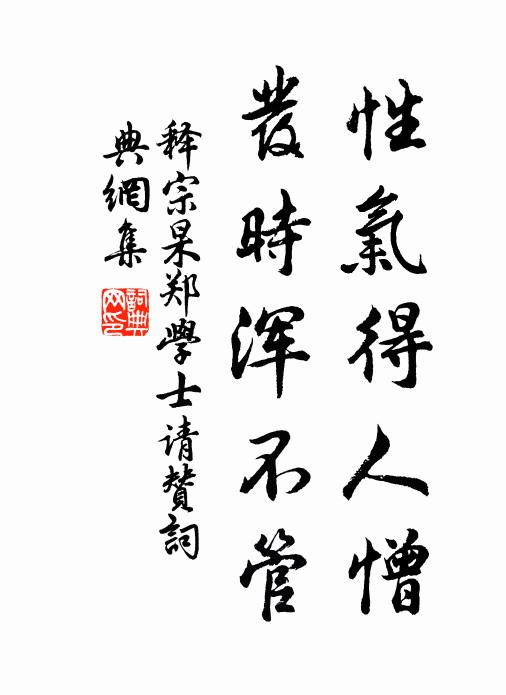 性氣得人憎
發時渾不管
释宗杲郑學士请贊詞
典網集
詞典網印